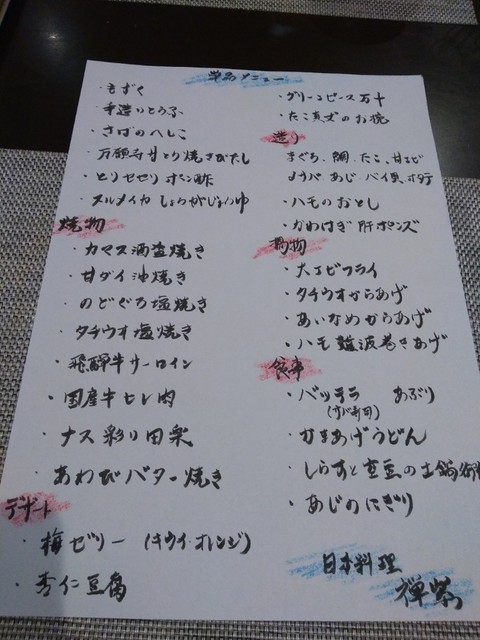 単品メニュー
・もずく
・手造りとうふ
・さばのへしこ
・万願寺甘とう焼きびたし
・とりセセリ ポン酢
・スルメイカ しょうがじょうゆ
焼物
・カマス酒盗焼き
・甘ダイ油焼き
・のどぐろ塩焼き
・タチウオ塩焼き
・飛騨牛サーロイン
・国産牛ヒレ肉
・ナス彩り田楽
・あわびバター焼き
デザート
・梅ゼリー (キウイ・オレンジ)
・杏仁豆腐
・グリーンピース万十
・たこ真丈のお椀
造り
まぐろ、鯛、たこ、甘エビ
ヨコワ あじ、バイ貝、ホタテ
・ハモのおとし
・かわはぎ 肝ポンズ
揚物
・大エビフライ
・タチウオからあげ
・あいなめからあげ
・ハモ難波巻きあげ
食事
・バッテラ あぶり
(サバ寿司)
・かまあげうどん
・しらすと空豆の土鍋御飯
・あじのにぎり
日本料理
禅紫